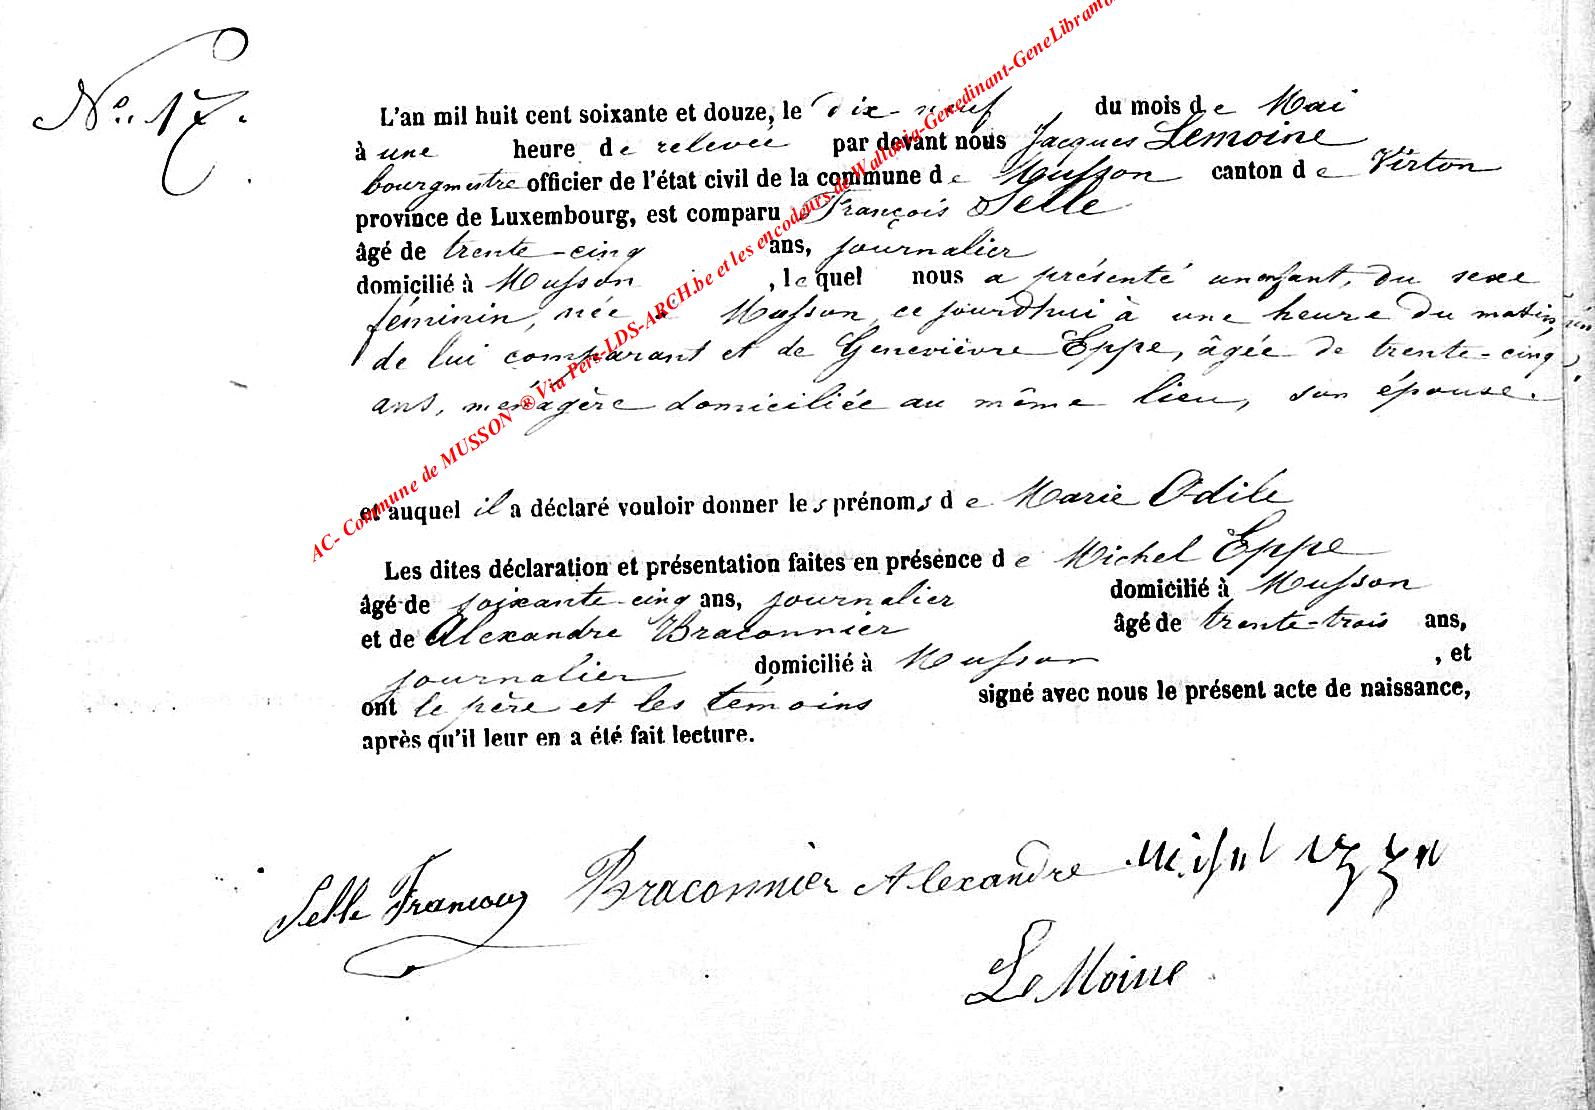 N°. 17.
L'an mil huit cent soixante et douze, le dix-neuf du mois de Mai
à une heure de relevée par devant nous Jacques Lemoine
bourgmestre officier de l'état civil de la commune de Musson canton de Virton
province de Luxembourg, est comparu François Selle
âgé de trente-cinq ans, journalier
domicilié à Musson, lequel nous a présenté un enfant, du sexe
féminin, née à Musson, ce jourd'hui à une heure du matin
de lui comparant et de Geneviève Eppe, âgée de trente-cinq
ans, ménagère domiciliée au même lieu, son épouse.
et auquel il a déclaré vouloir donner les prénoms de Marie Odile
Les dites déclaration et présentation faites en présence de Michel Eppe
âgé de soixante-cinq ans, journalier domicilié à Musson
et de Alexandre Braconnier âgé de trente-trois ans,
journalier domicilié à Musson, et
ont le père et les témoins signé avec nous le présent acte de naissance,
après qu'il leur en a été fait lecture.
Selle François Braconnier Alexandre
LeMoine
AC- Commune de MUSSON ® Via Pers-LDS-ARCH.be et les encodeurs de Wallonia-Genedinant-GeneLibramo